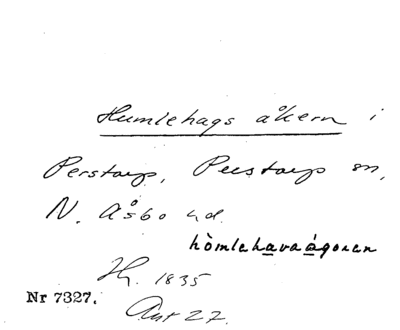 Humlehags åkern i
Perstorp, Perstorp sn,
N. Åsbo hd.
hòmlehavaágoren
H. 1835
Nr 7327.
Ant 27.